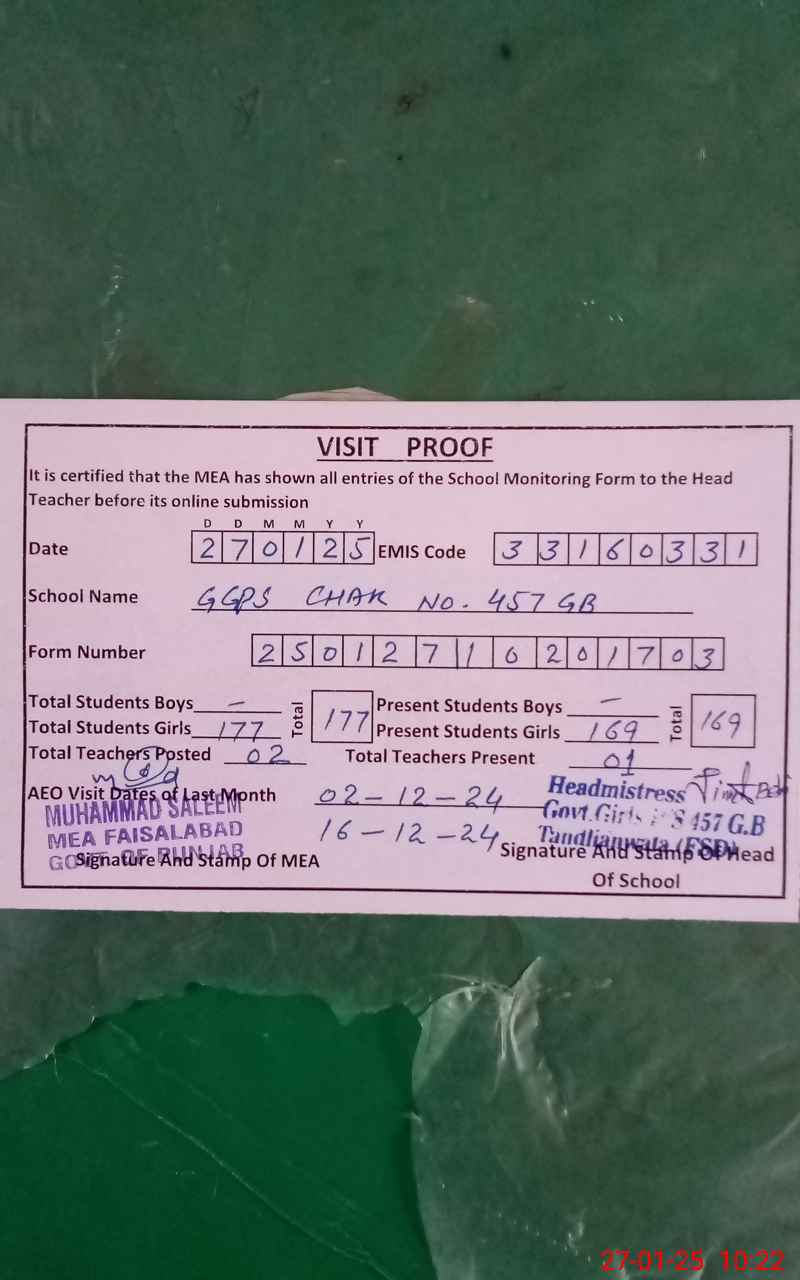 VISIT PROOF
It is certified that the MEA has shown all entries of the School Monitoring Form to the Head
Teacher before its online submission
D D M M Y Y
Date 2 7 0 1 2 5 EMIS Code 3 3 1 6 0 3 3 1
School Name GGPS CHAK NO. 457 GB
Form Number 2 5 0 1 2 7 1 0 2 0 1 7 0 3
Total Students Boys — Total 177 Present Students Boys — Total 169
Total Students Girls 177 Present Students Girls 169
Total Teachers Posted 02 Total Teachers Present 01
AEO Visit Dates of Last Month 02-12-24
16-12-24
MUHAMMAD SALEEM
MEA FAISALABAD
GOVT. OF PUNJAB
Signature And Stamp Of MEA
Headmistress
Govt. Girls P/S 457 G.B
Tandlianwala (FSD)
Signature And Stamp Of Head
Of School
27-01-25 10:22